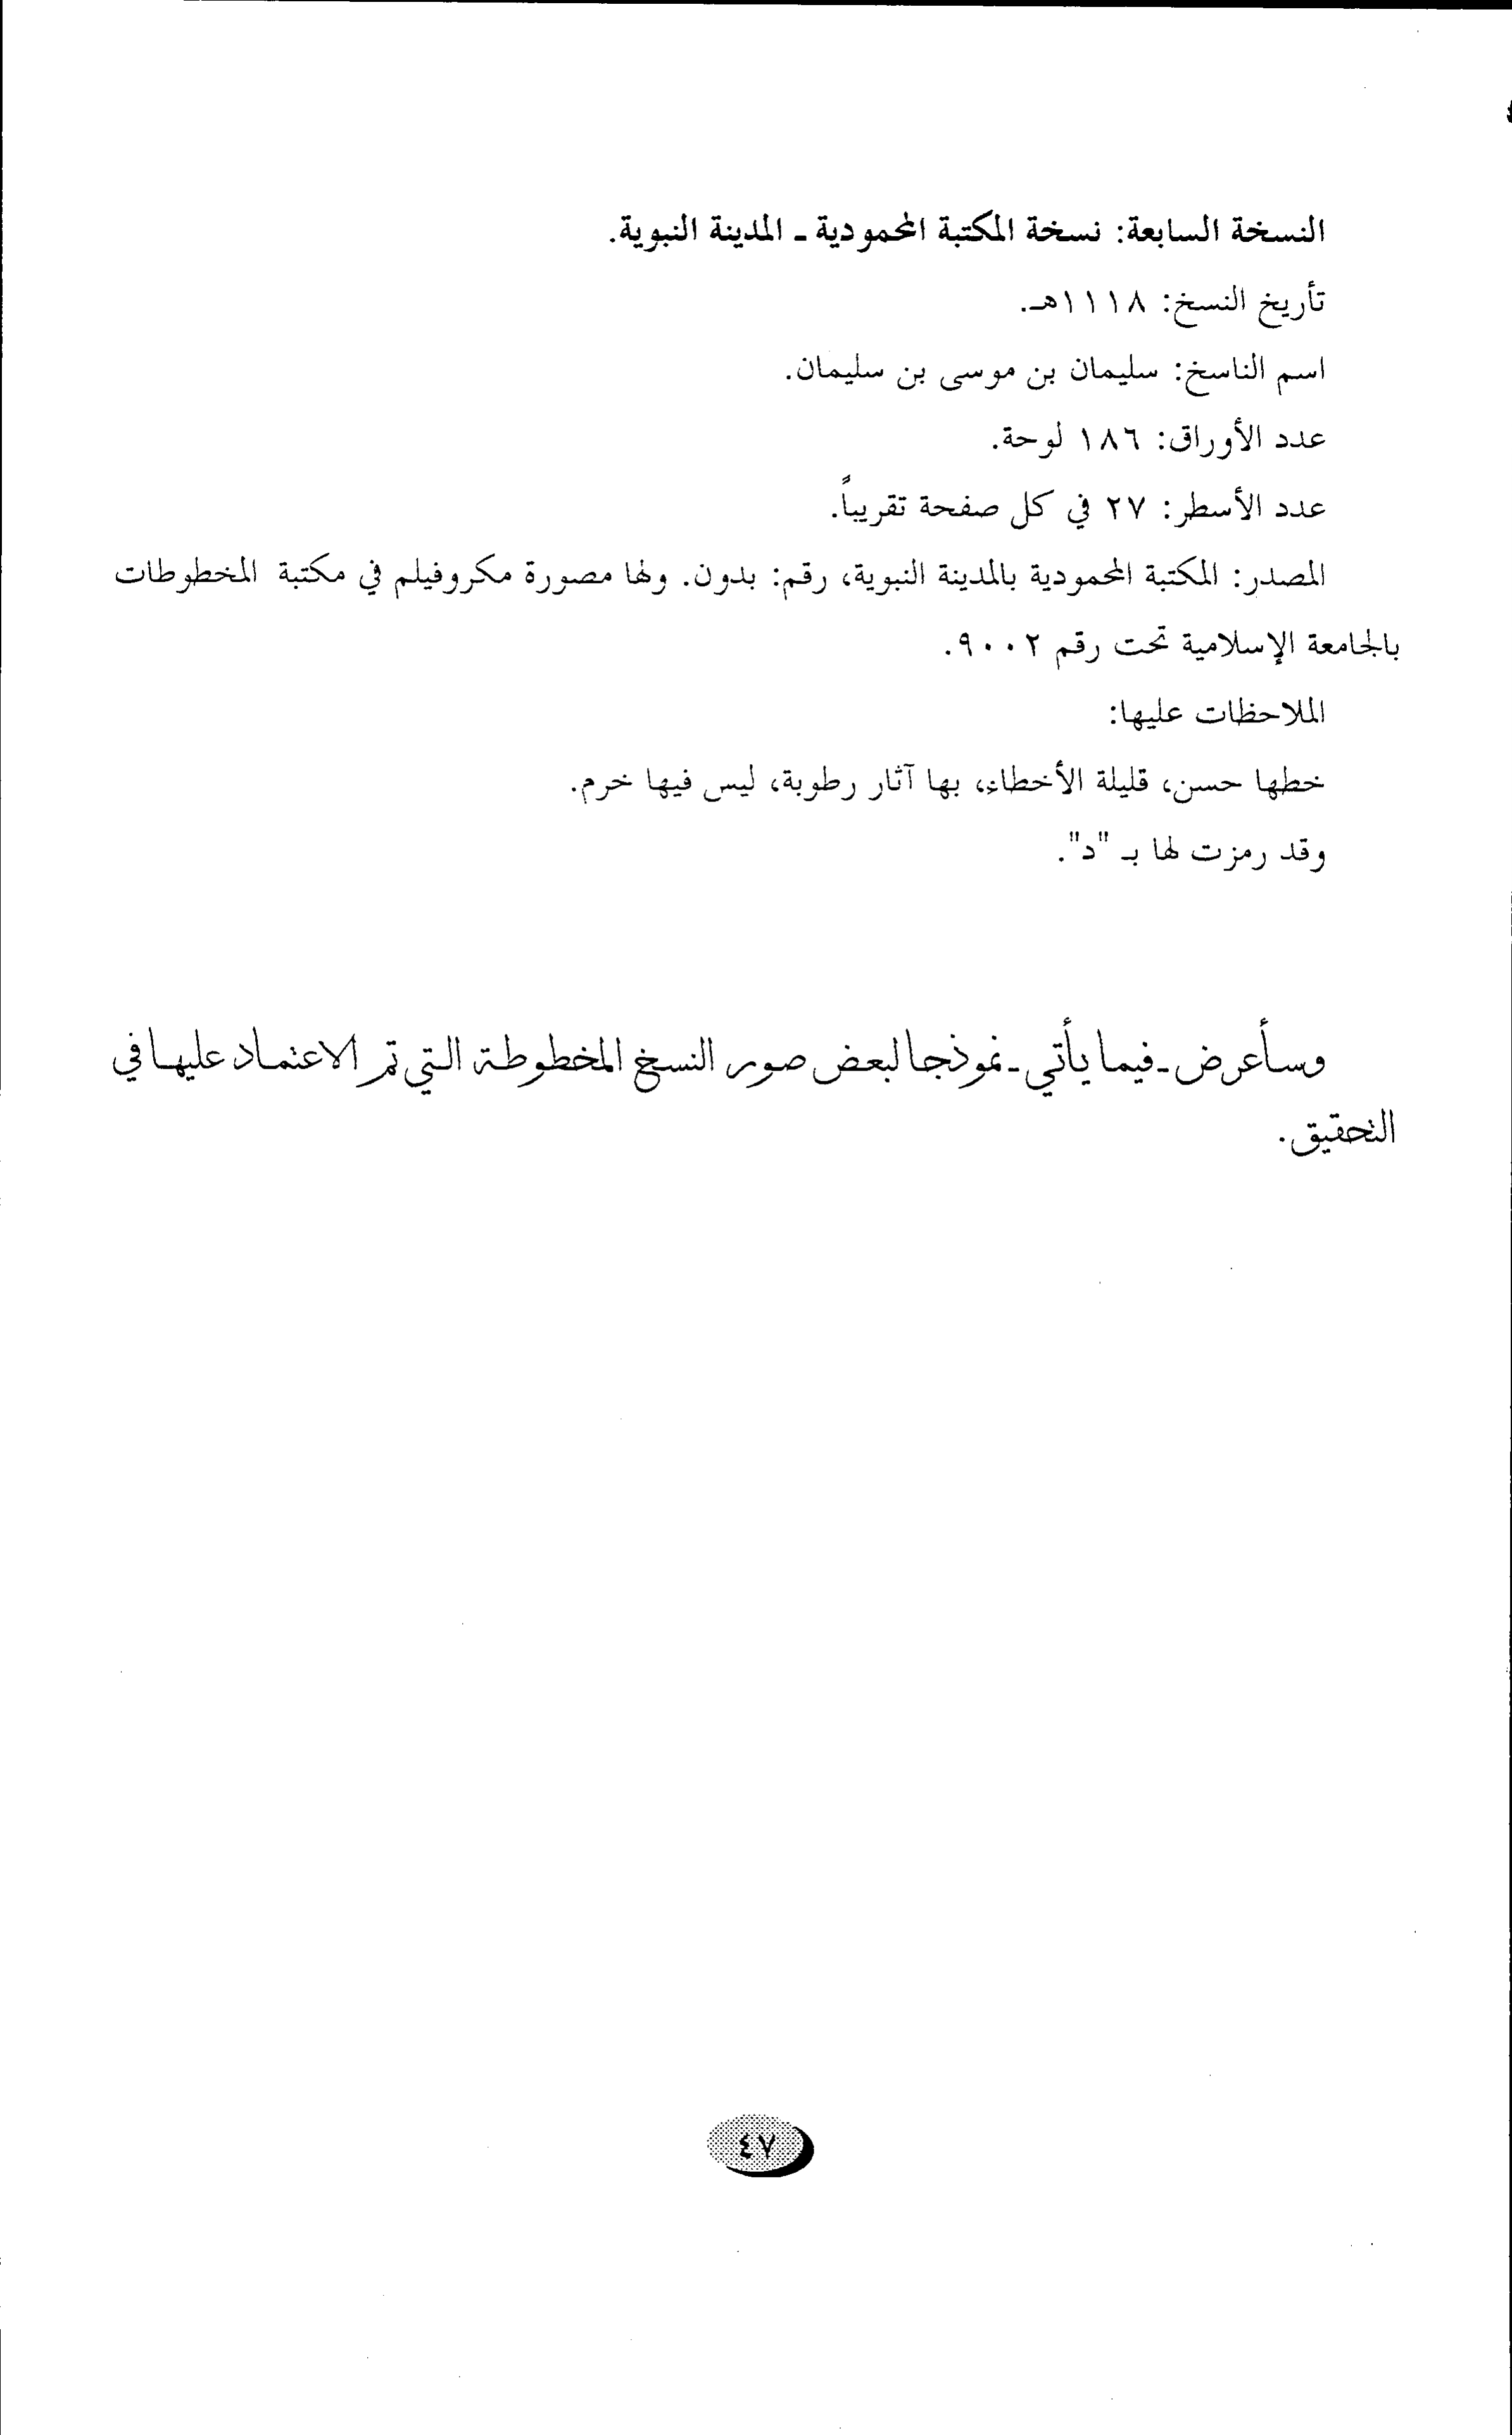 النسخة السابعة: نسخة المكتبة المحمودية ـ المدينة النبوية.
تأريخ النسخ: ١١١٨هـ.
اسم الناسخ: سليمان بن موسى بن سليمان.
عدد الأوراق: ١٨٦ لوحة.
عدد الأسطر: ٢٧ في كل صفحة تقريباً.
المصدر: المكتبة المحمودية بالمدينة النبوية، رقم: بدون. ولها مصورة مكروفيلم في مكتبة المخطوطات
بالجامعة الإسلامية تحت رقم ٩٠٠٢.
الملاحظات عليها:
خطها حسن، قليلة الأخطاء، بها آثار رطوبة، ليس فيها خرم.
وقد رمزت لها بـ "د".
وسأعرض ـ فيما يأتي ـ نموذجا لبعض صور النسخ المخطوطة التي تم الاعتماد عليها في
التحقيق.
٤٧